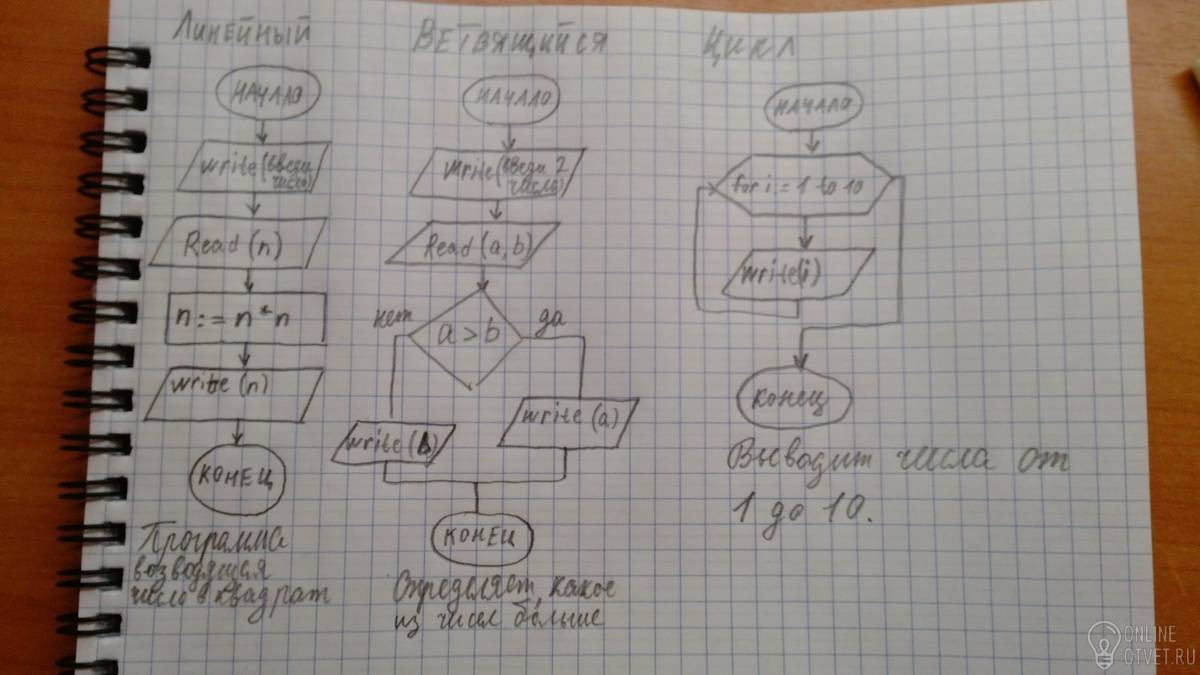 Линейный
НАЧАЛО
write(введи
число)
Read(n)
n:=n*n
write(n)
КОНЕЦ
Программа
возводящая
число в квадрат
Ветвящийся
НАЧАЛО
write(введи 2
числа)
Read(a,b)
a>b
нет
да
write(b)
write(a)
КОНЕЦ
Определяет, какое
из чисел больше
Цикл
НАЧАЛО
for i:=1 to 10
write(i)
КОНЕЦ
Выводит числа от
1 до 10.
ONLINE
OTVET.RU